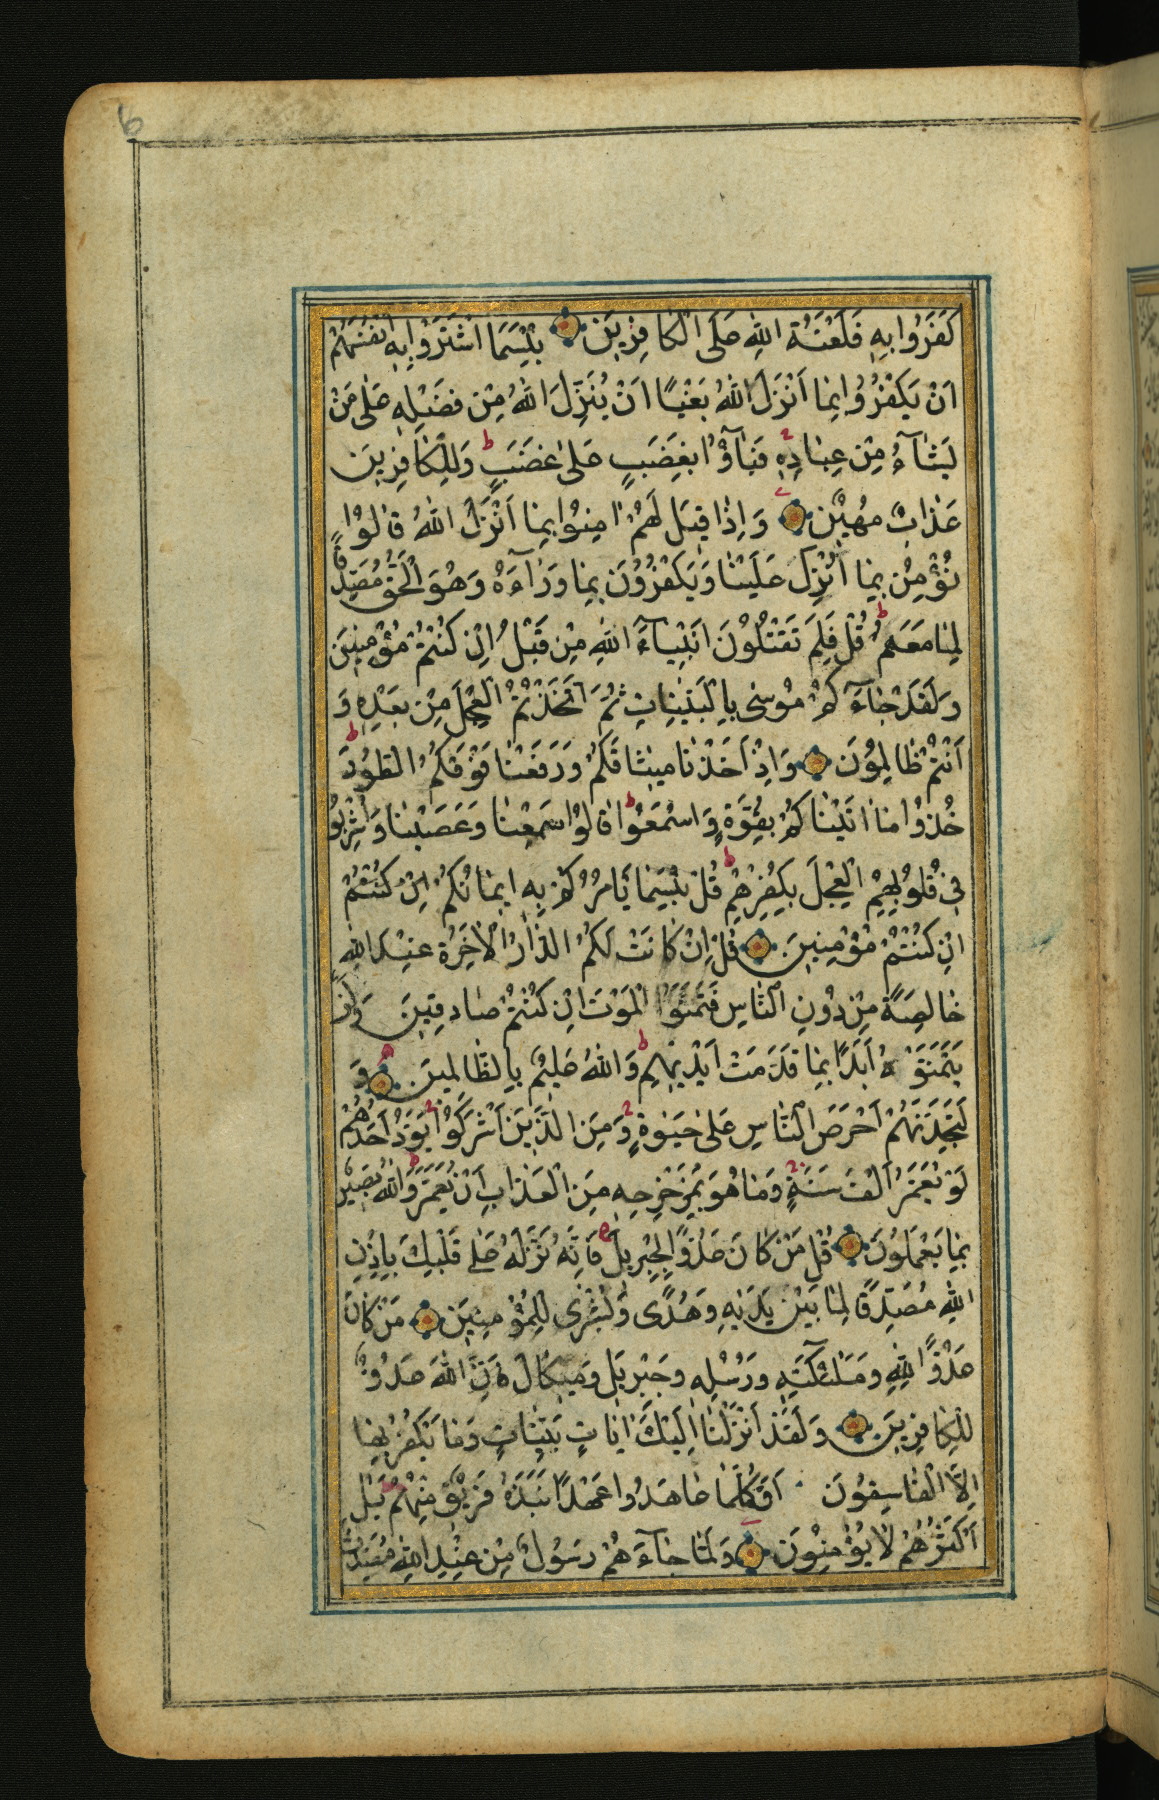 6
كَفَرُوا بِهِ فَلَعْنَةُ اللّٰهِ عَلَى الْكَافِرِينَ بِئْسَمَا اشْتَرَوْا بِهِ اَنْفُسَهُمْ
اَنْ يَكْفُرُوا بِمَا اَنْزَلَ اللّٰهُ بَغْيًا اَنْ يُنَزِّلَ اللّٰهُ مِنْ فَضْلِهِ عَلٰى مَنْ
يَشَآءُ مِنْ عِبَادِهِ فَبَآؤُا بِغَضَبٍ عَلٰى غَضَبٍ وَلِلْكَافِرِينَ
عَذَابٌ مُهِينٌ وَاِذَا قِيلَ لَهُمْ اٰمِنُوا بِمَا اَنْزَلَ اللّٰهُ قَالُوا
نُؤْمِنُ بِمَا اُنْزِلَ عَلَيْنَا وَيَكْفُرُونَ بِمَا وَرَآءَهُ وَهُوَ الْحَقُّ مُصَدِّقًا
لِمَا مَعَهُمْ قُلْ فَلِمَ تَقْتُلُونَ اَنْبِيَآءَ اللّٰهِ مِنْ قَبْلُ اِنْ كُنْتُمْ مُؤْمِنِينَ
وَلَقَدْ جَآءَكُمْ مُوسٰى بِالْبَيِّنَاتِ ثُمَّ اتَّخَذْتُمُ الْعِجْلَ مِنْ بَعْدِهِ وَ
اَنْتُمْ ظَالِمُونَ وَاِذْ اَخَذْنَا مِيثَاقَكُمْ وَرَفَعْنَا فَوْقَكُمُ الطُّورَ
خُذُوا مَا اٰتَيْنَاكُمْ بِقُوَّةٍ وَاسْمَعُوا قَالُوا سَمِعْنَا وَعَصَيْنَا وَاُشْرِبُوا
فِي قُلُوبِهِمُ الْعِجْلَ بِكُفْرِهِمْ قُلْ بِئْسَمَا يَأْمُرُكُمْ بِهِ اِيمَانُكُمْ اِنْ كُنْتُمْ
اِنْ كُنْتُمْ مُؤْمِنِينَ قُلْ اِنْ كَانَتْ لَكُمُ الدَّارُ الْاٰخِرَةُ عِنْدَ اللّٰهِ
خَالِصَةً مِنْ دُونِ النَّاسِ فَتَمَنَّوُا الْمَوْتَ اِنْ كُنْتُمْ صَادِقِينَ وَلَنْ
يَتَمَنَّوْهُ اَبَدًا بِمَا قَدَّمَتْ اَيْدِيهِمْ وَاللّٰهُ عَلِيمٌ بِالظَّالِمِينَ وَ
لَتَجِدَنَّهُمْ اَحْرَصَ النَّاسِ عَلٰى حَيٰوةٍ وَمِنَ الَّذِينَ اَشْرَكُوا يَوَدُّ اَحَدُهُمْ
لَوْ يُعَمَّرُ اَلْفَ سَنَةٍ وَمَا هُوَ بِمُزَحْزِحِهِ مِنَ الْعَذَابِ اَنْ يُعَمَّرَ وَاللّٰهُ بَصِيرٌ
بِمَا يَعْمَلُونَ قُلْ مَنْ كَانَ عَدُوًّا لِجِبْرِيلَ فَاِنَّهُ نَزَّلَهُ عَلٰى قَلْبِكَ بِاِذْنِ
اللّٰهِ مُصَدِّقًا لِمَا بَيْنَ يَدَيْهِ وَهُدًى وَبُشْرٰى لِلْمُؤْمِنِينَ مَنْ كَانَ
عَدُوًّا لِلّٰهِ وَمَلٰئِكَتِهِ وَرُسُلِهِ وَجِبْرِيلَ وَمِيكَالَ فَاِنَّ اللّٰهَ عَدُوٌّ
لِلْكَافِرِينَ وَلَقَدْ اَنْزَلْنَا اِلَيْكَ اٰيَاتٍ بَيِّنَاتٍ وَمَا يَكْفُرُ بِهَا
اِلَّا الْفَاسِقُونَ اَوَكُلَّمَا عَاهَدُوا عَهْدًا نَبَذَهُ فَرِيقٌ مِنْهُمْ بَلْ
اَكْثَرُهُمْ لَا يُؤْمِنُونَ وَلَمَّا جَآءَهُمْ رَسُولٌ مِنْ عِنْدِ اللّٰهِ مُصَدِّقٌ